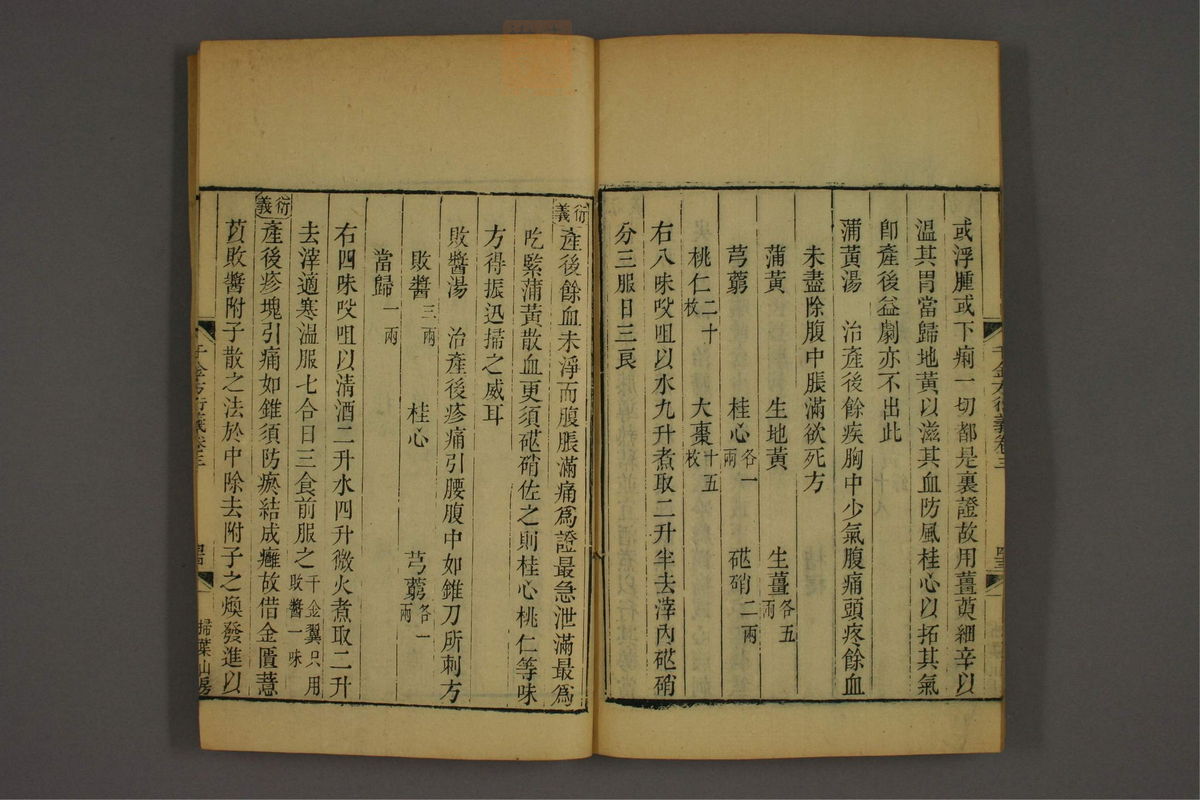 或浮腫或下痢一切都是裏證故用薑萸細辛以
溫其胃當歸地黃以滋其血防風桂心以拓其氣
卽產後益劇亦不出此
蒲黃湯　治產後餘疾胸中少氣腹痛頭疼餘血
未盡除腹中脹滿欲死方
蒲黃　生地黃　生薑各五兩
芎藭　桂心各一兩　硭硝二兩
桃仁二十枚　大棗十五枚
右八味㕮咀以水九升煮取二升半去滓內硭硝
分三服日三良
衍義產後餘血未淨而腹脹滿痛爲證最急泄滿最爲
吃緊蒲黃散血更須硭硝佐之則桂心桃仁等味
方得振迅掃之威耳
敗醬湯　治產後疹痛引腰腹中如錐刀所刺方
敗醬三兩　桂心　芎藭各一兩
當歸一兩
右四味㕮咀以清酒二升水四升微火煮取二升
去滓適寒溫服七合日三食前服之千金翼只用敗醬一味
衍義產後疹塊引痛如錐須防瘀結成癰故借金匱薏
苡敗醬附子散之法於中除去附子之煥發進以
千金方衍義卷三
掃葉山房